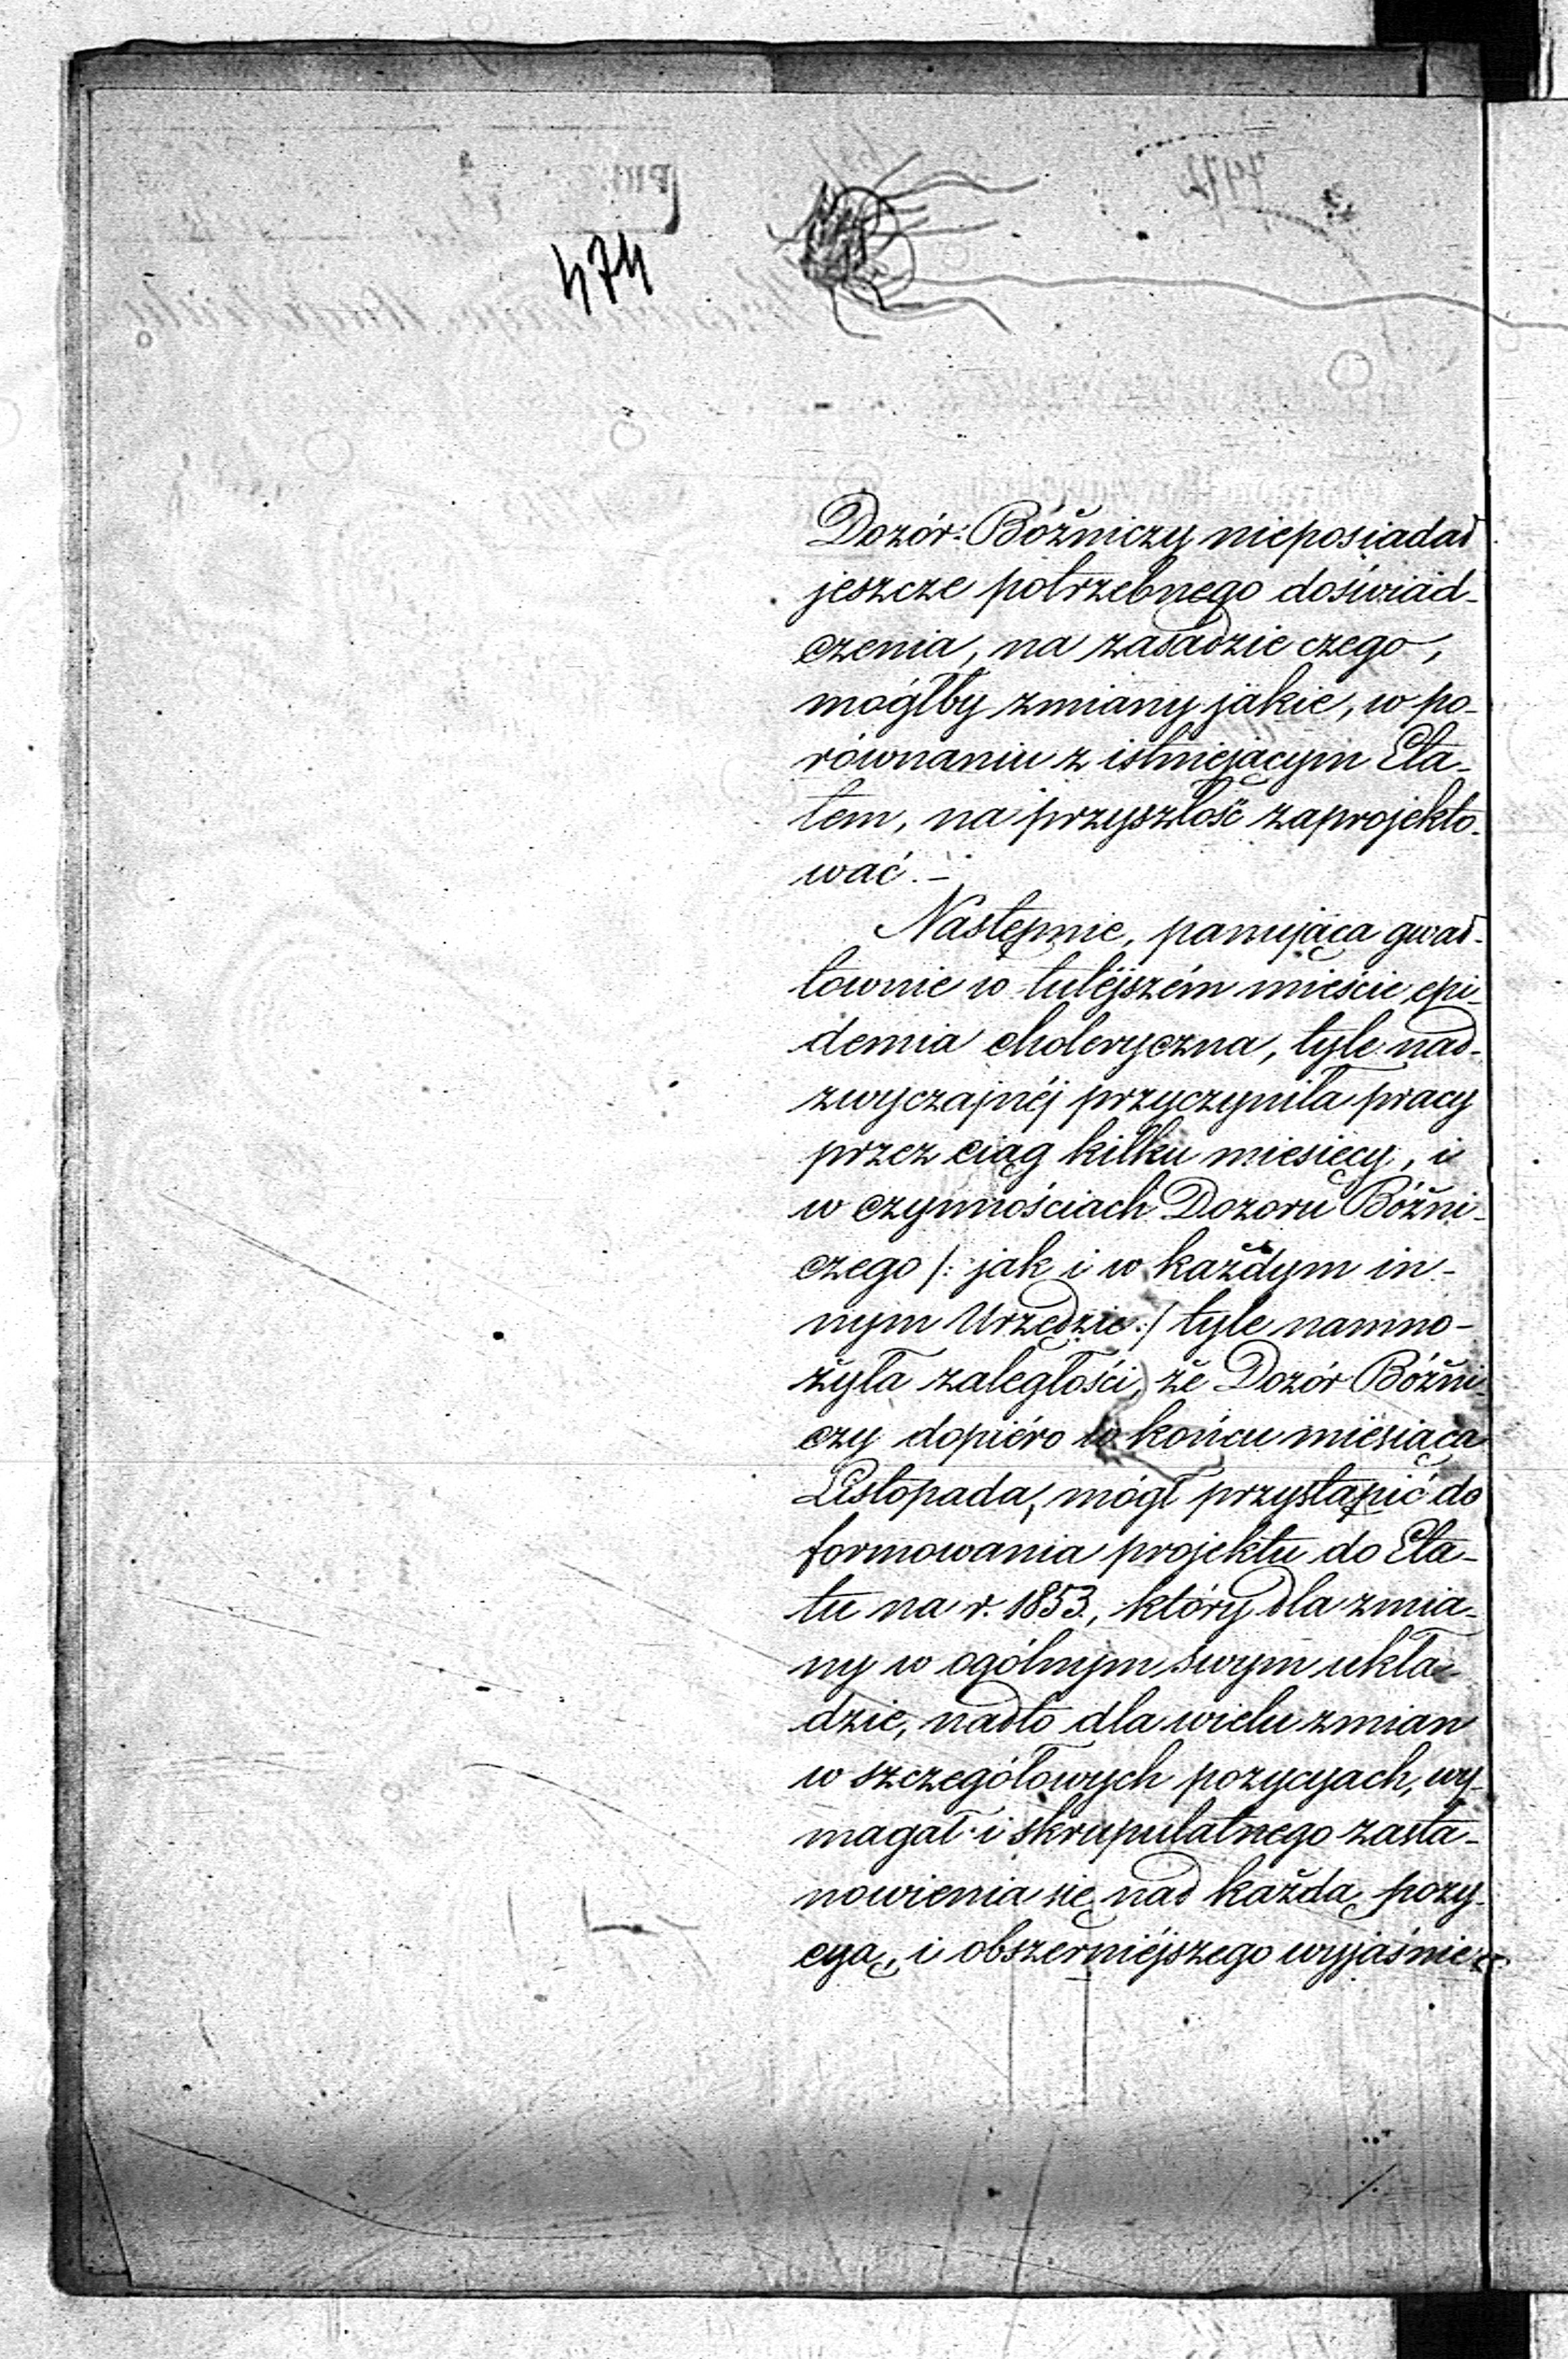 474
Dozór Bóżniczy nieposiadał
jeszcze potrzebnego doświad-
czenia, na zasadzie czego,
mógłby zmiany jakie, w po-
równaniu z istniejącym Eta-
tem, na przyszłość zaprojekto-
wać.-
Następnie, panująca gwał-
townie w tutéjszém mieście epi-
demia choleryczna, tyle nad-
zwyczajnéj przyczyniła pracy
przez ciąg kilku miesięcy, i
w czynnościach Dozoru Bóżni-
czego /: jak i w każdym in-
nym Urzędzie :/ tyle namno-
żyła zaległości, że Dozór Bóżni-
czy dopiéro w końcu miesiąca
Listopada, mógł przystąpić do
formowania projektu do Eta-
tu na r. 1853, który dla zmia-
ny w ogólnym swym ukła-
dzie, nadto dla wielu zmian
w szczegółowych pozycyach, wy-
magał i skrupulatnego zasta-
nowienia się nad każdą pozy-
cyą, i obszerniéjszego wyjaśnie-